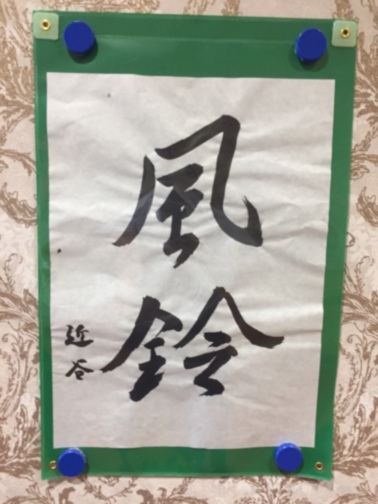 風鈴
近谷